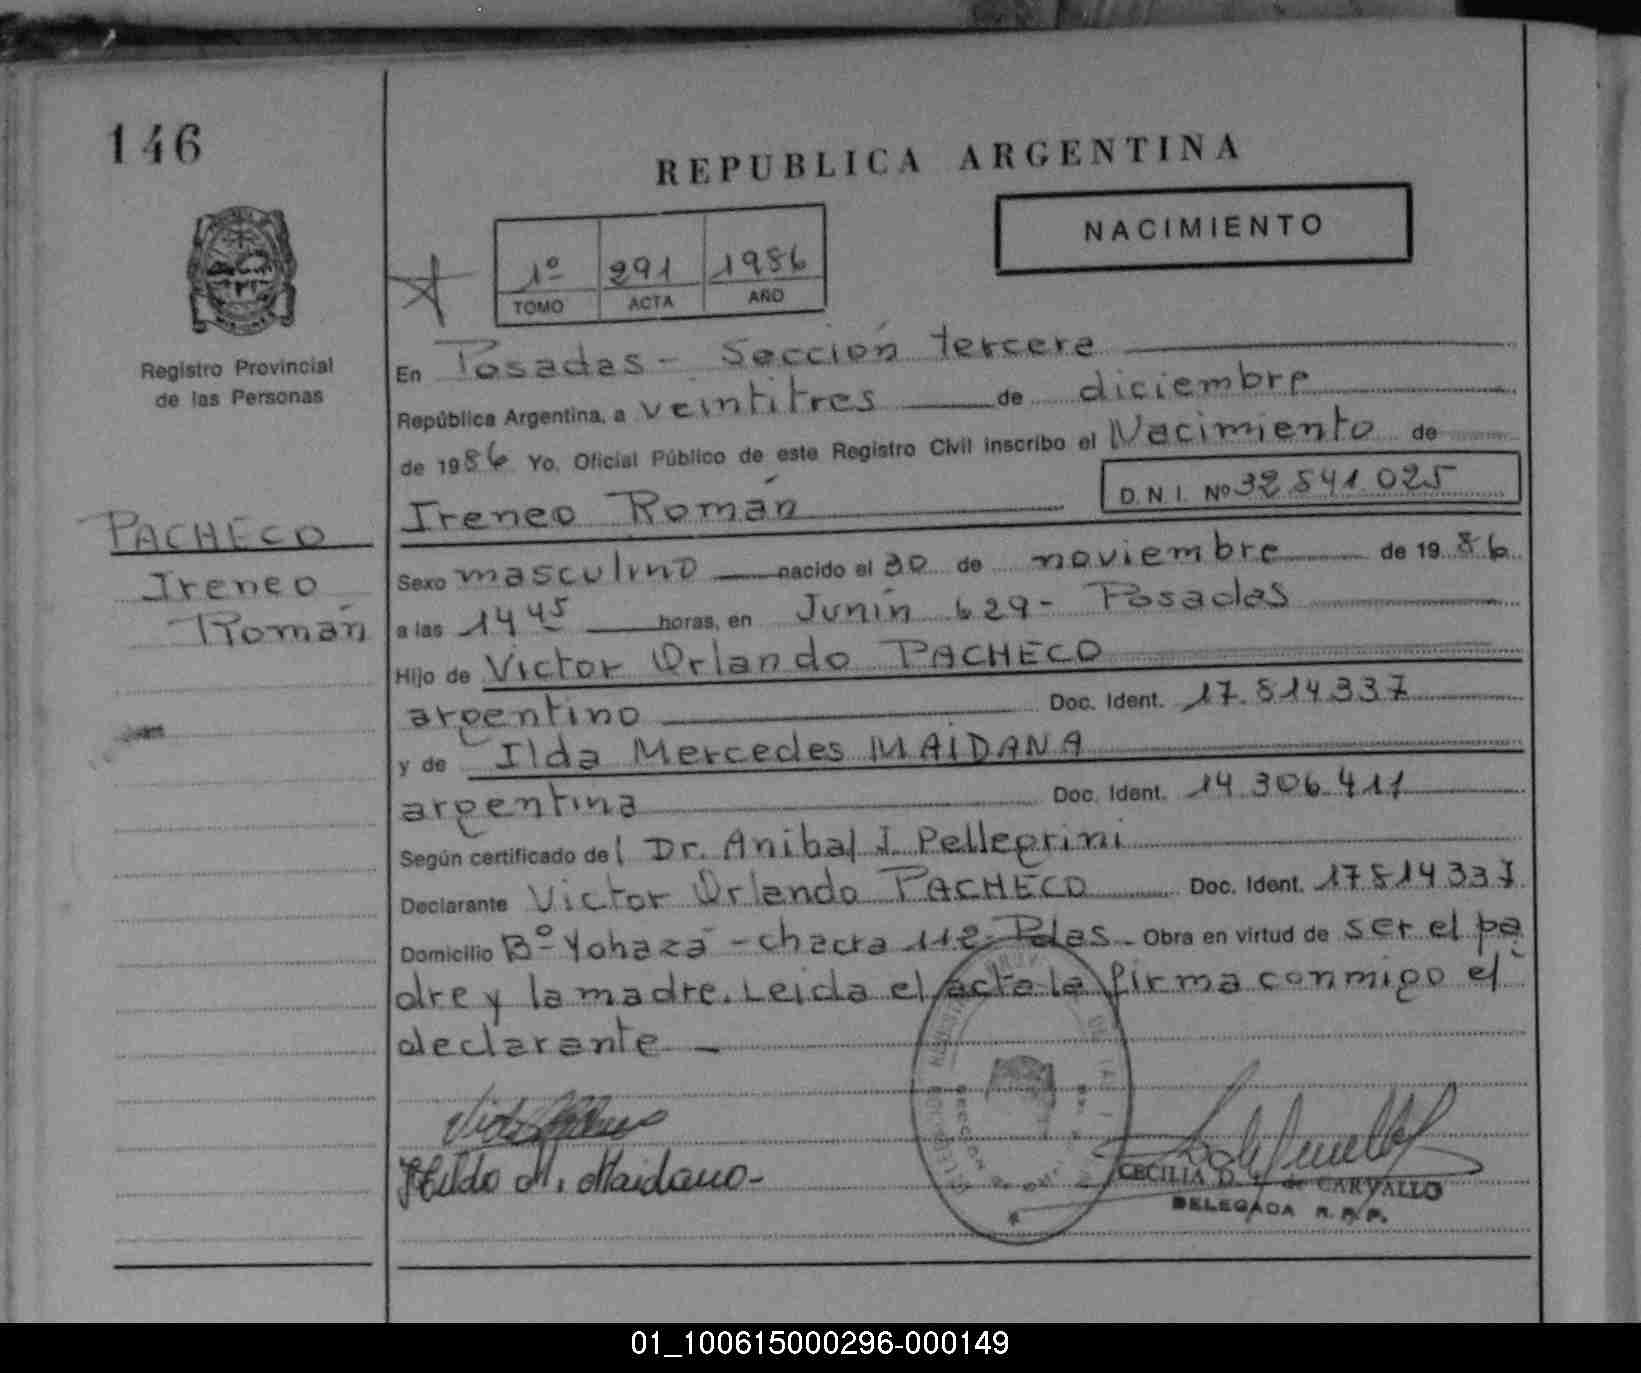 146
REPUBLICA ARGENTINA
NACIMIENTO
1º 291 1986
TOMO ACTA AÑO
Registro Provincial
de las Personas
En Posadas - Sección tercera
República Argentina, a veintitres de diciembre
de 1986 Yo, Oficial Público de este Registro Civil inscribo el Nacimiento de
Ireneo Román D.N.I. Nº 32.541.025
PACHECO
Ireneo
Román
Sexo masculino nacido el 30 de noviembre de 1986
a las 14 45 horas, en Junín 629 - Posadas
Hijo de Victor Orlando PACHECO
argentino Doc. Ident. 17.514.337
y de Ilda Mercedes MAIDANA
argentina Doc. Ident. 14.306.411
Según certificado del Dr. Anibal J. Pellegrini
Declarante Victor Orlando PACHECO Doc. Ident. 17514337
Domicilio Bº Yohazá - chacra 112 - Pdas. Obra en virtud de ser el pa
dre y la madre. Leida el acta la firma conmigo el
declarante -
M. Maidana -
CECILIA D. de CARVALLO
DELEGADA R.P.P.
01_100615000296-000149